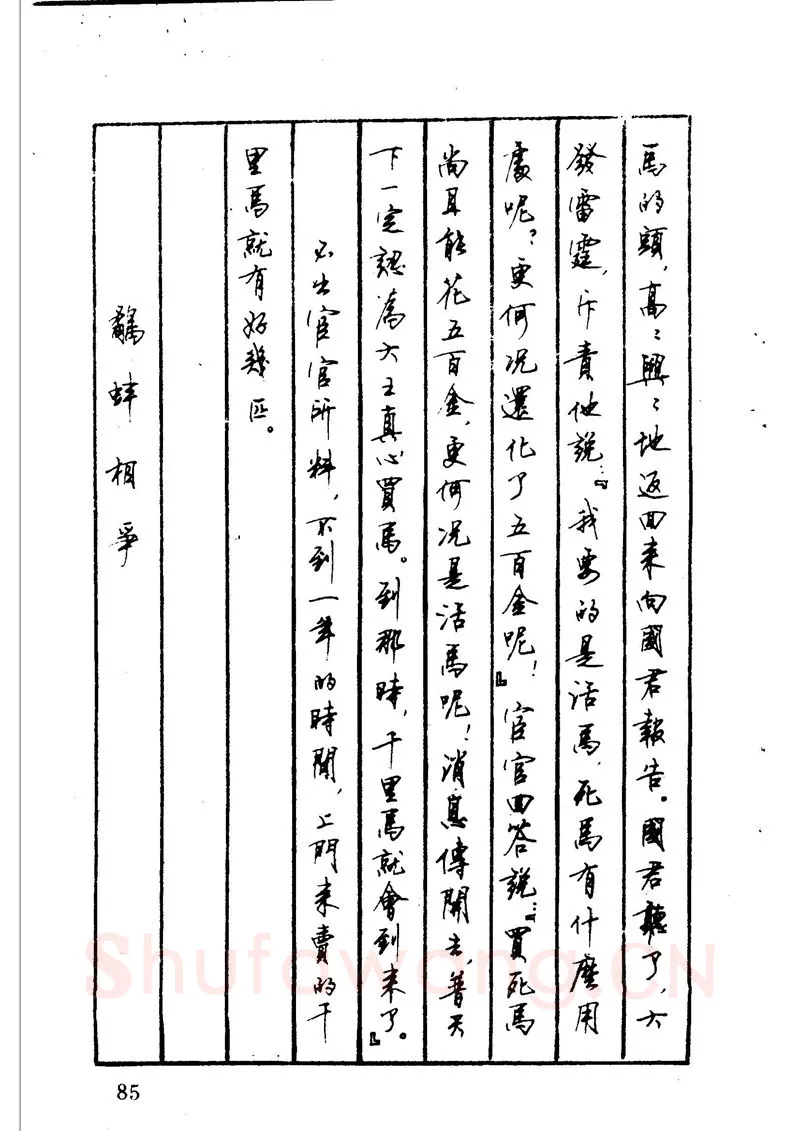 馬的頭，高〻興〻地返回來向國君報告。國君聽了，大
發雷霆，斥責他說：『我要的是活馬，死馬有什麼用
處呢？更何況還化了五百金呢！』宦官回答說：『買死馬
尚且能花五百金，更何況是活馬呢！消息傳開去，普天
下一定認為大王真心買馬。到那時，千里馬就會到來了。』
不出宦官所料，不到一年的時間，上門來賣的千
里馬就有好幾匹。
鷸蚌相爭
Shufawang.CN
85